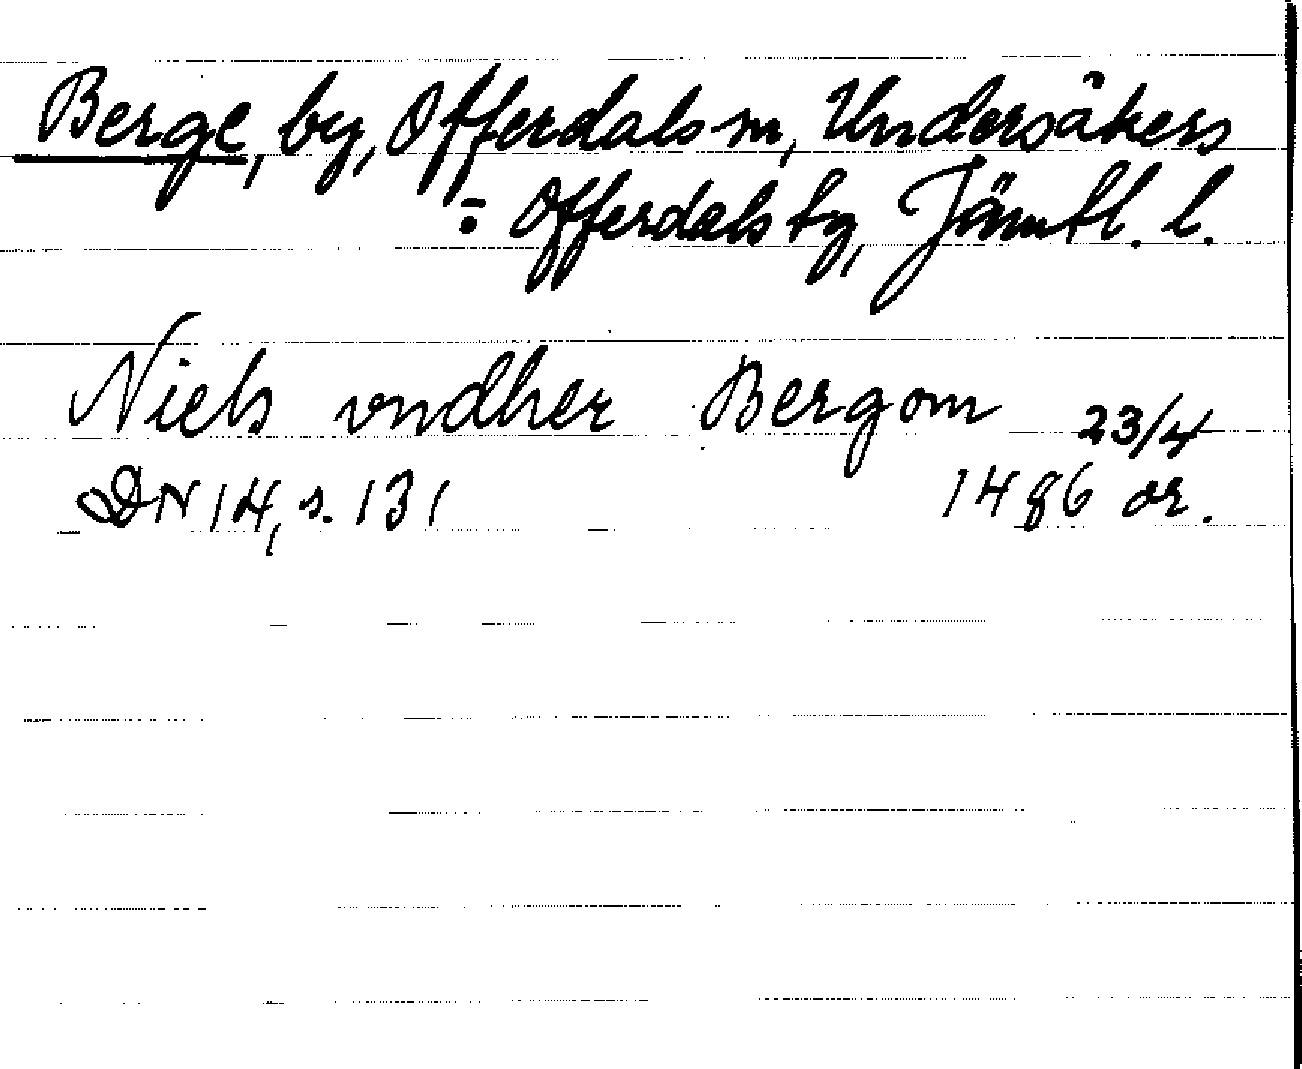 Berge, by, Offerdals sn, Undersåkers
- Offerdals tg, Jämtl. l.
Niels vndher Bergom 23/4
DN 14, s. 131 1486 or.